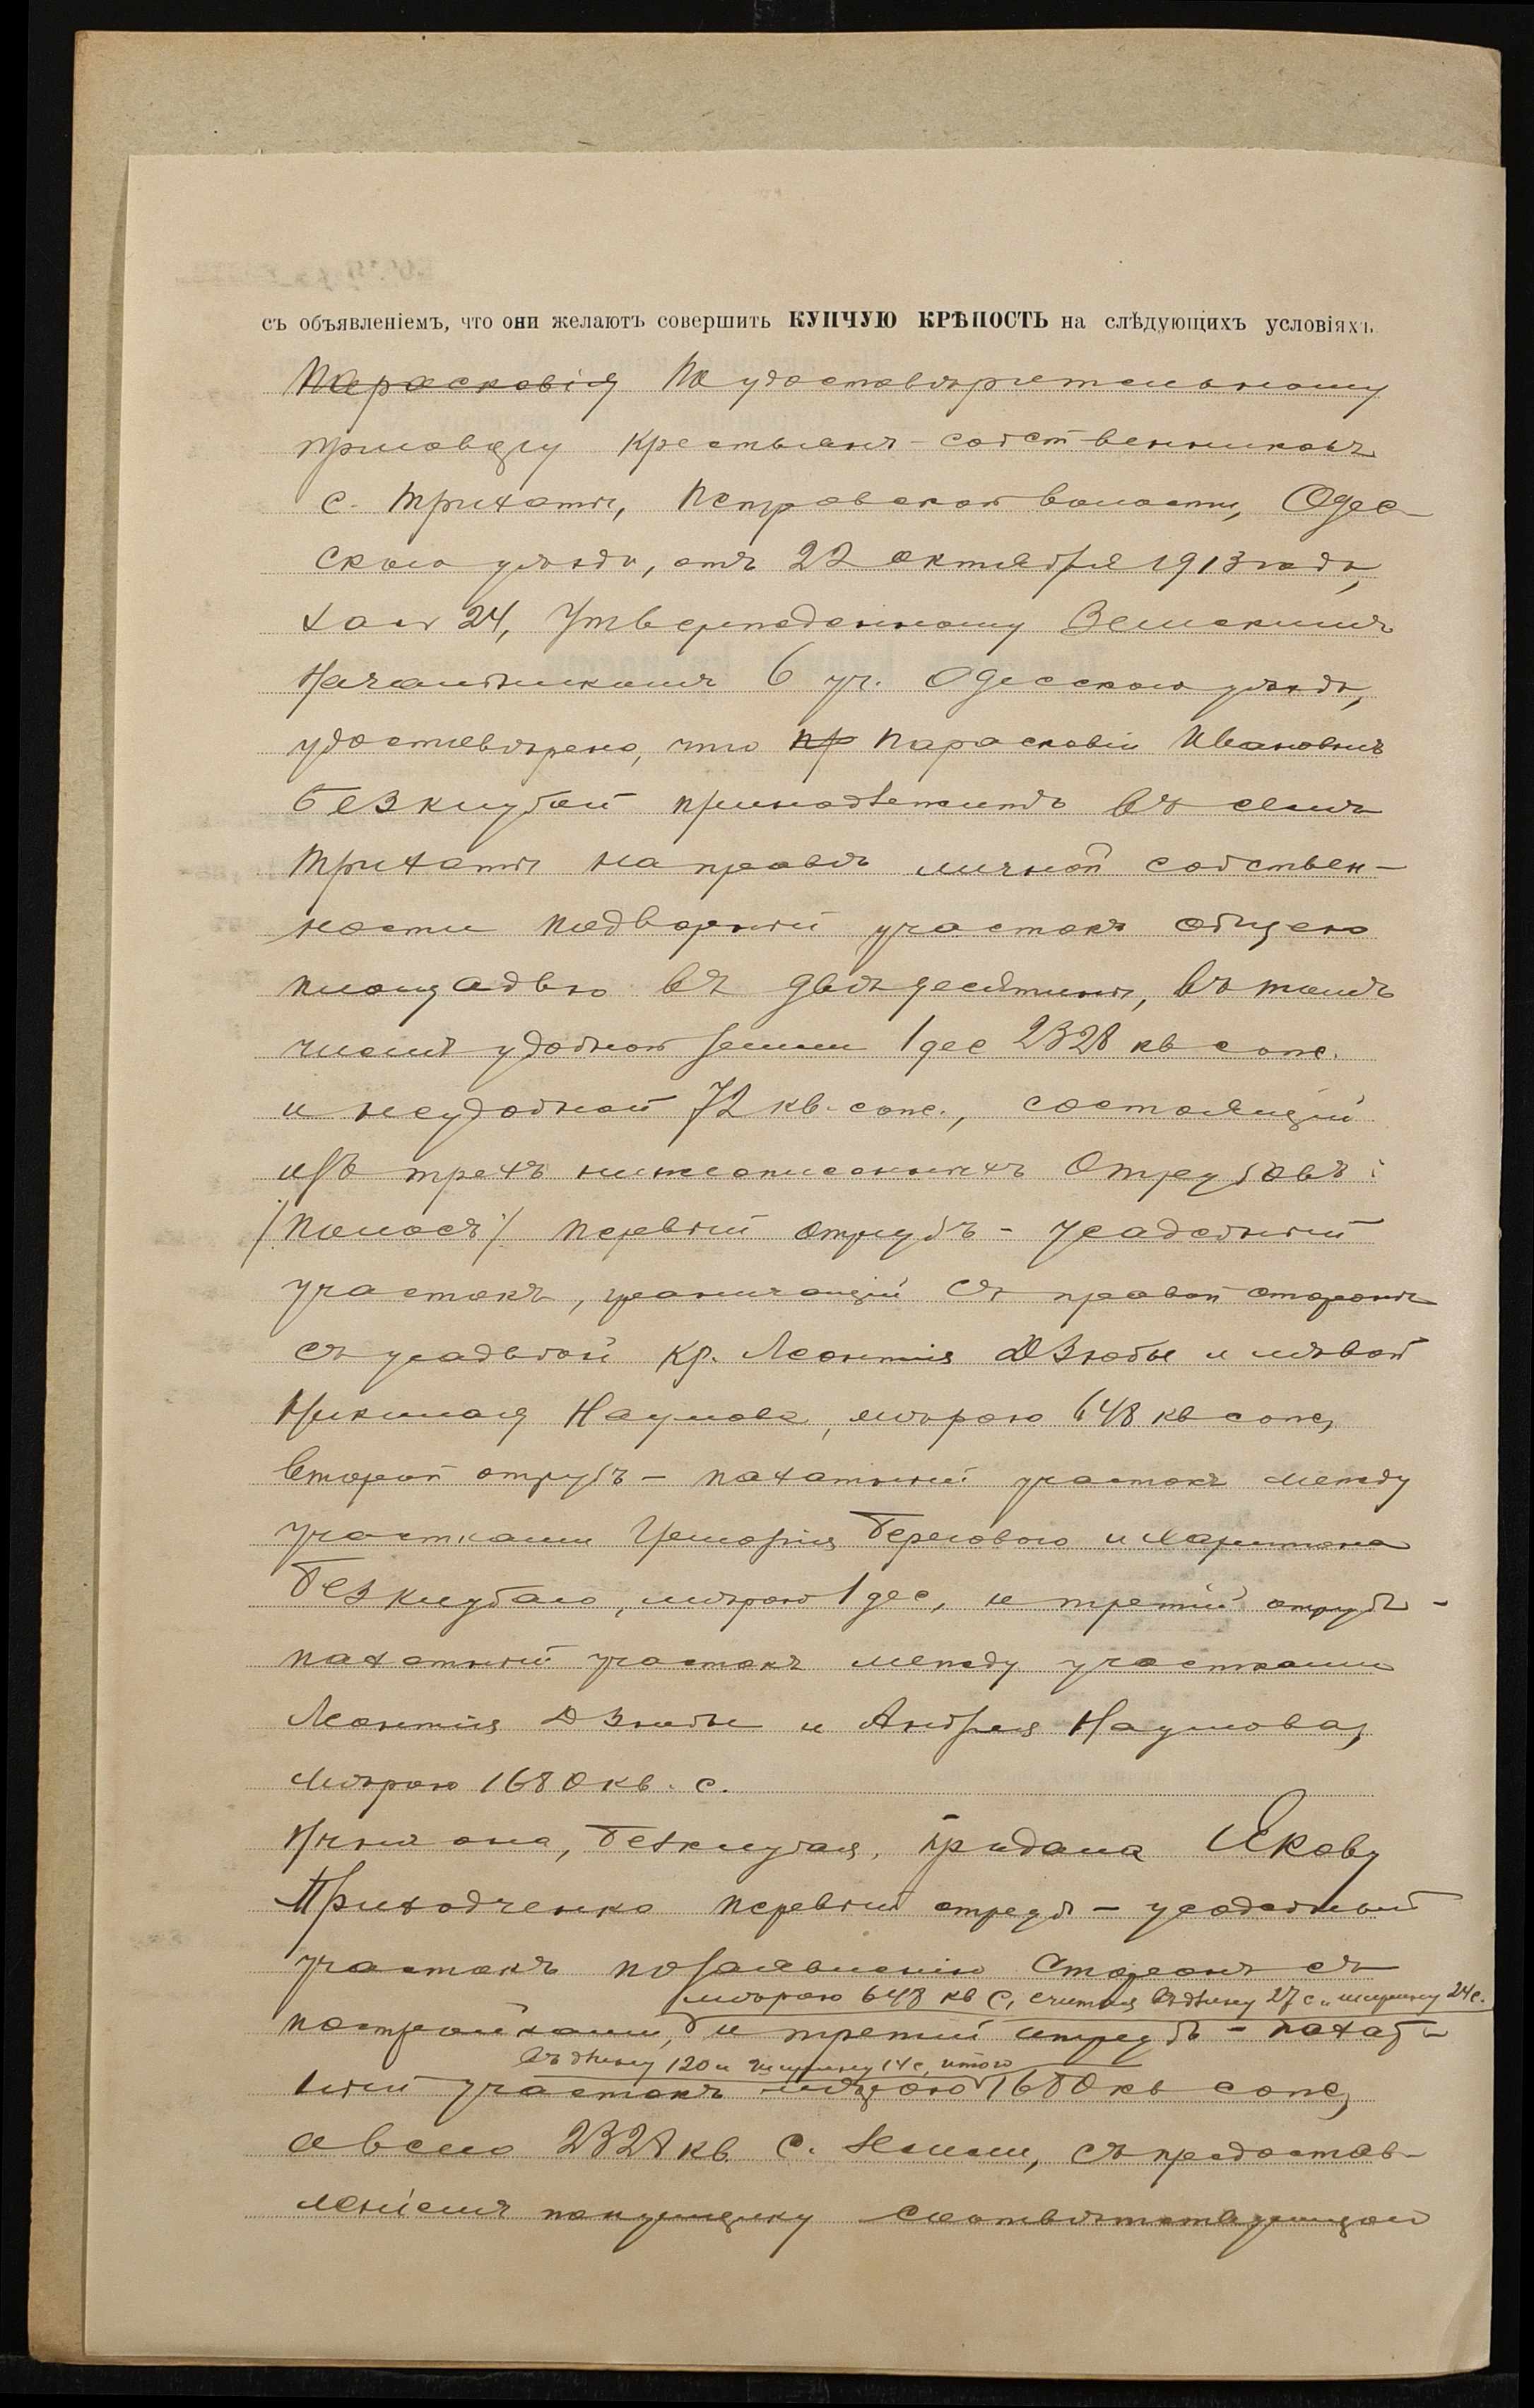 съ объявленіемъ, что они желаютъ совершить КУПЧУЮ КРѢПОСТЬ на слѣдующихъ условіяхъ
Парасковія По удостовѣрительному
приговору крестьянъ-собственниковъ
с. Трихатъ, Петровской волости, Одес-
скаго уѣзда, отъ 22 октября 1913 года,
за № 24, утвержденному Земскимъ
Начальникомъ 6 уч. Одесскаго уѣзда,
удостовѣрено, что пр Парасковіи Ивановнѣ
Безклубой принадлежитъ въ селѣ
Трихатъ на правѣ личной собствен-
ности подворный участокъ общею
площадью въ двѣ десятины, въ томъ
числѣ удобной земли 1 дес 2328 кв саж.
и неудобной 72 кв. саж., состоящій
изъ трехъ нижеописанныхъ отрубовъ:
/полосъ/ первый отрубъ - усадебный
участокъ, граничащій съ правой стороны
съ усадьбой кр. Леонтія Дзюбы и лѣвой
Николая Наумова, мѣрою 648 кв саж,
второй отрубъ - пахатный участокъ между
участками Григорія Берегового и Харитона
Безклубаго, мѣрою 1 дес, и третій отрубъ -
пахатный участокъ между участками
Леонтія Дзюбы и Андрея Наумова,
мѣрою 1680 кв. с.
Нынѣ она, Безклубая, продала Якову
Приходченко первый отрубъ - усадебный
участокъ по заявленію сторонъ съ
мѣрою 648 кв с, считая въ длину 27 с и ширину 24 с.
постройками, и третій отрубъ - пахат-
въ длину 120 и ширину 14 с, итого
ный участокъ мѣрою 1680 кв саж,
а всего 2328 кв. с. земли, съ предостав-
леніемъ покупщику соотвѣтствующей